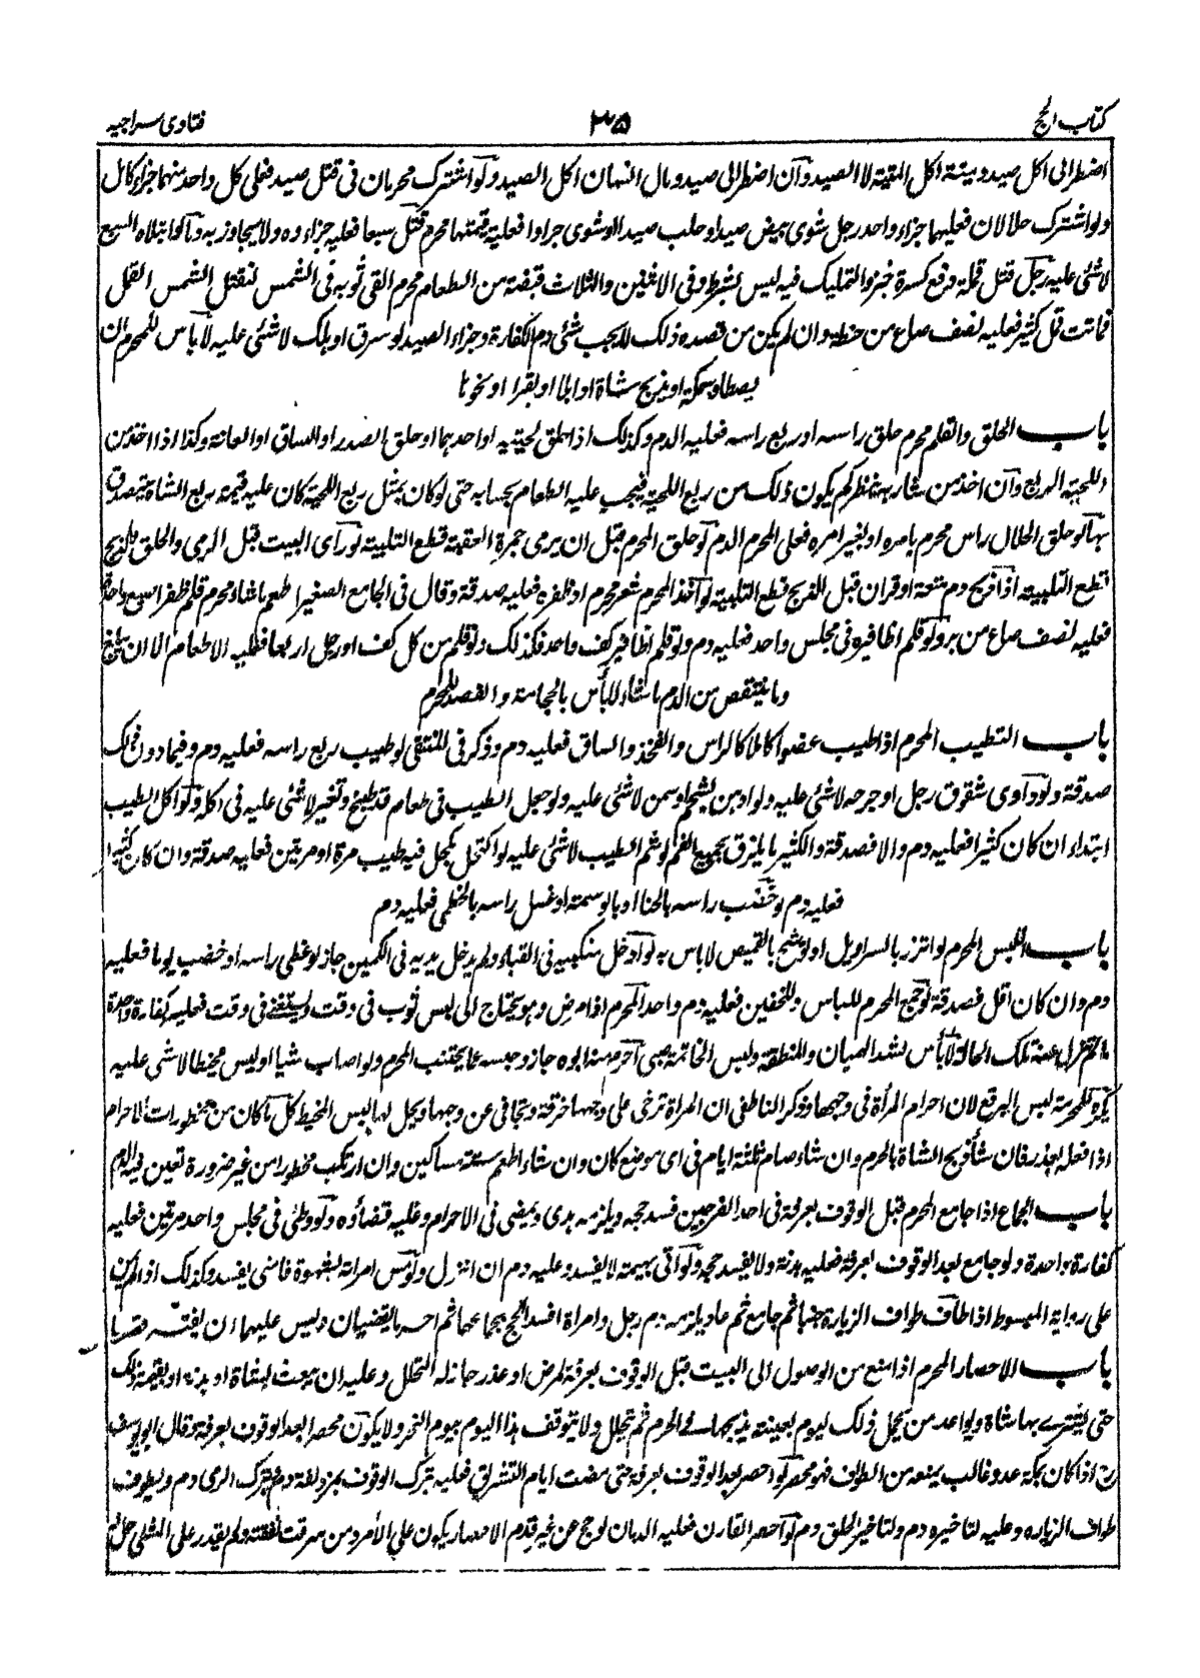 كتاب الحج
٣٥
فتاوى سراجيه
اضطر الى اكل صيد وميتة اكل الميتة لا الصيد وان اضطر الى صيد ومال انسان اكل الصيد ولو اشترك محرمان فى قتل صيد فعلى كل واحد منهما جزاء كامل
ولو اشترك حلالان فعليهما جزاء واحد رجل شوى بيض صيد او حلب صيدا او شوى جرادا فعليه قيمتها محرم قتل سبعا فعليه جزاءه ولا يجاوز به دما لو ابتلاه السبع
لا شئ عليه رجل قتل قملة دفع كسرة خبز والتمليك فيه ليس بشرط وفى الاثنين والثلاث قبضة من الطعام محرم القى ثوبه فى الشمس لتقتل الشمس القمل
فماتت قمل كثير فعليه نصف صاع من حنطة وان لم يكن من قصده ذلك لا يجب شئ دم الكفارة وجزاء الصيد لو سرق او هلك لا شئ عليه لا باس للمحرم ان
يصطاد سمكة او يذبح شاة او ابلا او بقرا او نحوها
باب الحلق والقلم محرم حلق راسه او ربع راسه فعليه الدم وكذلك اذا حلق لحيته او احدهما او حلق الصدر او الساق او العانة وكذا اذا اخذ من
اللحية الربع وان اخذ من شاربه ينظر كم يكون ذلك من ربع اللحية فيجب عليه الطعام بحسابه حتى لو كان مثل ربع اللحية كان عليه قيمة ربع الشاة يتصدق
بها لو حلق الحلال راس محرم بامره او بغير امره فعلى المحرم الدم لو حلق المحرم قبل ان يرمى جمرة العقبة قطع التلبية لو راى البيت قبل الرمى والحلق والذبح
قطع التلبية اذا ذبح دم متعة او قران قبل الذبح قطع التلبية لو اخذ المحرم شعر محرم او ظفره فعليه صدقة وقال فى الجامع الصغير اطعم ما شاء محرم قلم ظفر اصبع واحد
فعليه نصف صاع من بر ولو قلم اظافيره فى مجلس واحد فعليه دم ولو قلم اظافير كف واحد فكذلك ولو قلم من كل كف او رجل اربعا فعليه الاطعام الا ان يبلغ
دما ينتقص من الدم ما شاء لا بأس بالحجامة والفصد للمحرم
باب التطيب المحرم اذا طيب عضوا كاملا كالراس والفخذ والساق فعليه دم وذكر فى المنتقى لو طيب ربع راسه فعليه دم وفيما دون ذلك
صدقة ولو داوى شقوق رجل او جرحه لا شئ عليه ولو ادهن بشحم او سمن لا شئ عليه ولو جعل الطيب فى طعام قد طبخ وتغير لا شئ عليه فى اكله ولو اكل الطيب
ابتداء ان كان كثيرا فعليه دم والا فصدقة والكثير ما يلزق بجميع الفم لو شم الطيب لا شئ عليه لو اكتحل بكحل فيه طيب مرة او مرتين فعليه صدقة وان كان كثيرا
فعليه دم لو خضب راسه بالحنا او بالوسمة او غسل راسه بالخطمى فعليه دم
باب اللبس المحرم لو اتزر بالسراويل او اتشح بالقميص لا باس به لو ادخل منكبيه فى القباء ولم يدخل يديه فى الكمين جاز لو غطى راسه او خضب يوما فعليه
دم وان كان اقل فصدقة لو جمع المحرم اللباس والخفين فعليه دم واحد المحرم اذا مرض وهو يحتاج الى لبس ثوب فى وقت ويستغنى فى وقت فعليه كفارة واحدة
ما لم تزل عنه تلك الحالة لا بأس بشد الهميان والمنطقة ولبس الخاتم صبى احرم عنه ابوه جاز وجنبه عما يجتنب المحرم ولو اصاب شيا او لبس مخيطا لا شئ عليه
يكره للمحرمة لبس البرقع لان احرام المرأة فى وجهها وذكر الناطفى ان المراة ترخى على وجهها خرقة وتجافى عن وجهها ويحل لها لبس المخيط كل ما كان من محظورات الاحرام
اذا فعله بعذر فان شاء ذبح الشاة بالحرم وان شاء صام ثلثة ايام فى اى موضع كان وان شاء اطعم ستة مساكين وان ارتكب محظورا من غير ضرورة تعين فيه الدم
باب الجماع اذا جامع المحرم قبل الوقوف بعرفة فى احد الفرجين فسد حجه ويلزمه هدى ويمضى فى الاحرام وعليه قضاؤه ولو وطئ فى مجلس واحد مرتين فعليه
كفارة واحدة ولو جامع بعد الوقوف بعرفة فعليه بدنة ولا يفسد حجه ولو اتى بهيمة لا يفسد وعليه دم ان انزل ولو مس امراته بشهوة فامنى يفسد وكذلك اذا لم يمن
على رواية المبسوط اذا طاف طواف الزيارة جنبا ثم جامع ثم عاد يلزمه دم رجل وامراة افسدا الحج بجماعهما ثم احرما يقضيان وليس عليهما ان يفترقا
باب الاحصار المحرم اذا منع من الوصول الى البيت قبل الوقوف بعرفة لمرض او عذر جاز له التحلل وعليه ان يبعث بشاة او بدنة او بقيمة ذلك
حتى يشترے بها شاة ويواعد من يحمل ذلك ليوم بعينه يذبحها فى الحرم ثم تحلل ولا يتوقف هذا اليوم بيوم النحر ولا يكون محصرا بعد الوقوف بعرفة وقال ابو يوسف
رح اذا كان بمكة عدو غالب يمنعه من الطواف فهو محصر لو احصر بعد الوقوف بعرفة حتى مضت ايام التشريق فعليه بترك الوقوف بمزدلفة دم وبترك الرمى دم ويطوف
طواف الزيارة وعليه لتاخيره دم ولتاخير الحلق دم لو احصر القارن فعليه الدمان لو حج عن غيره فدم الاحصار يكون على الأمر ومن سرقت نفقته ولم يقدر على المشى حل له